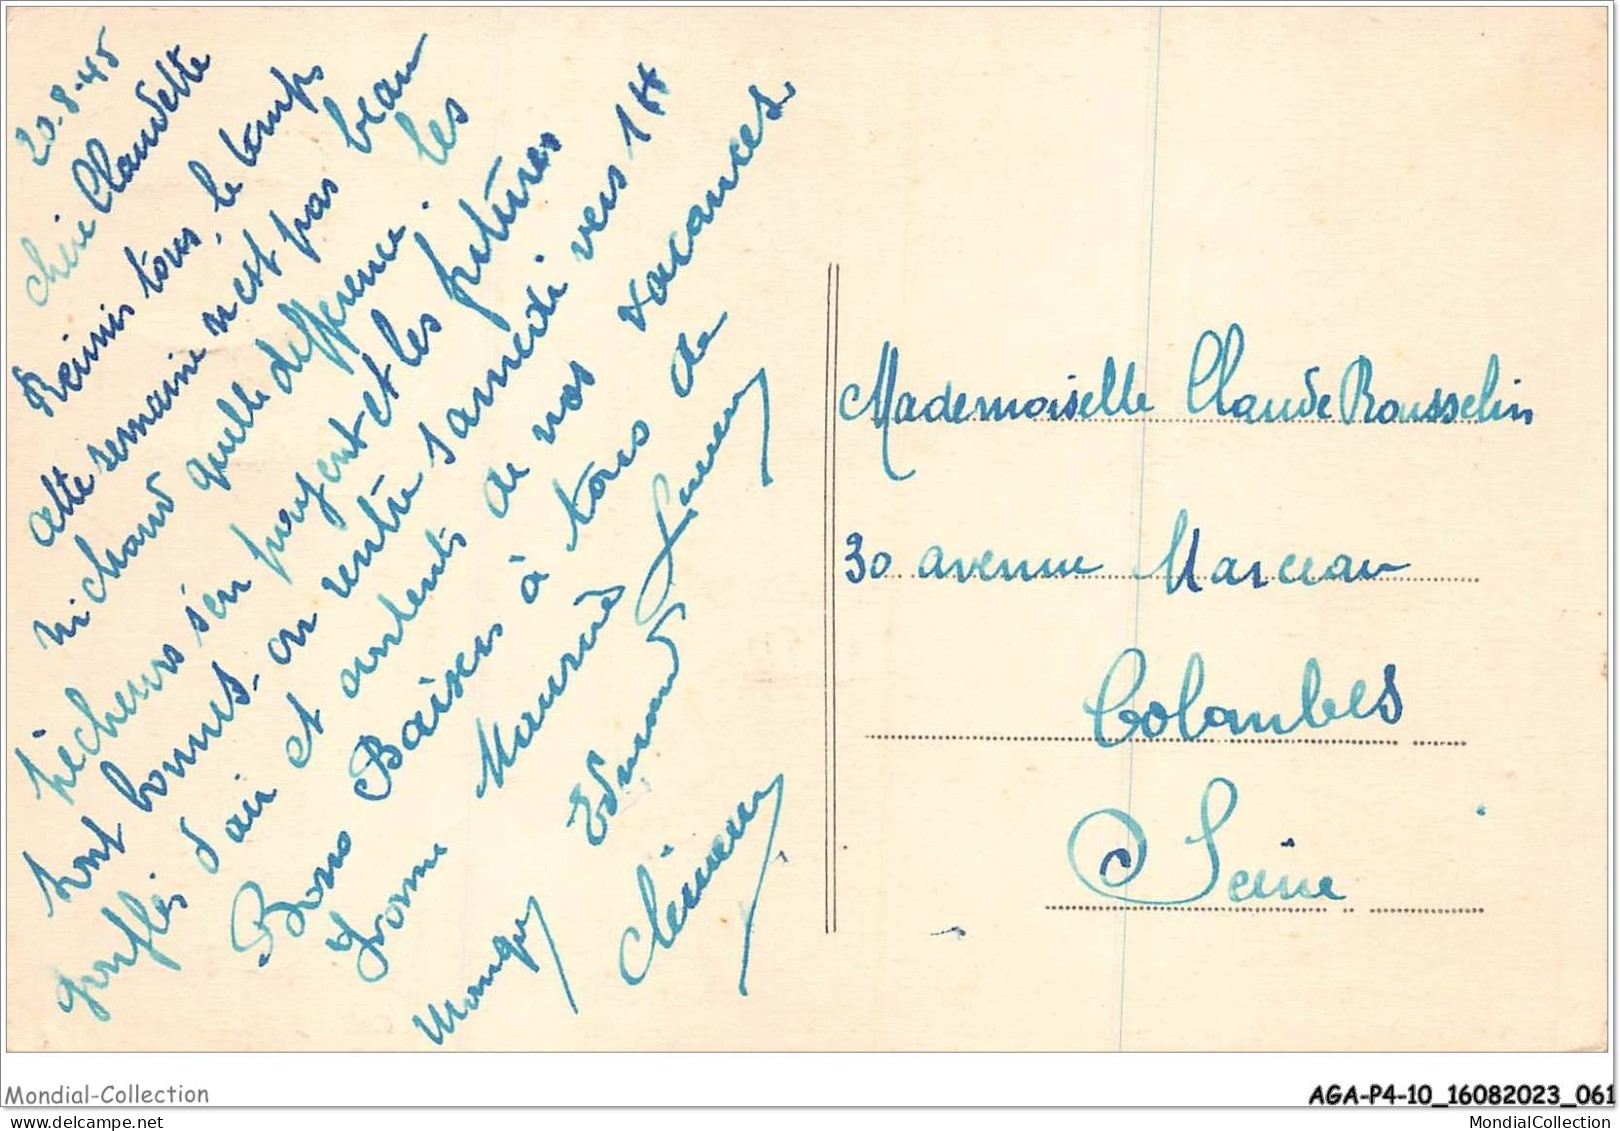 20-8-45
chère Claudette
Réunis tous, le temps
cette semaine n'est pas beau
ni chaud quelle différence. les
pêcheurs s'en payent et les fritures
sont bonnes. on rentre samedi vers 1H
gonflés d'air et contents de nos vacances.
Bons Baisers à tous de
Yvonne Maurice
Edmond
Clémence
Mademoiselle Claude Rousselin
30 avenue Marceau
Colombes
Seine
Mondial-Collection
AGA-P4-10_16082023_061
MondialCollection